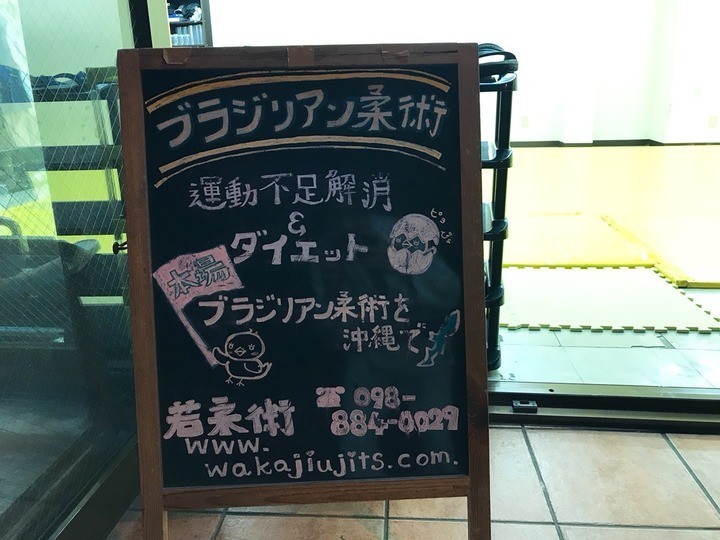 ブラジリアン柔術
運動不足解消
&
ダイエット
ピヨ
ピヨ
本場
ブラジリアン柔術を
沖縄で
若柔術
☎ 098-
884-0029
www.
wakajiujits.com.